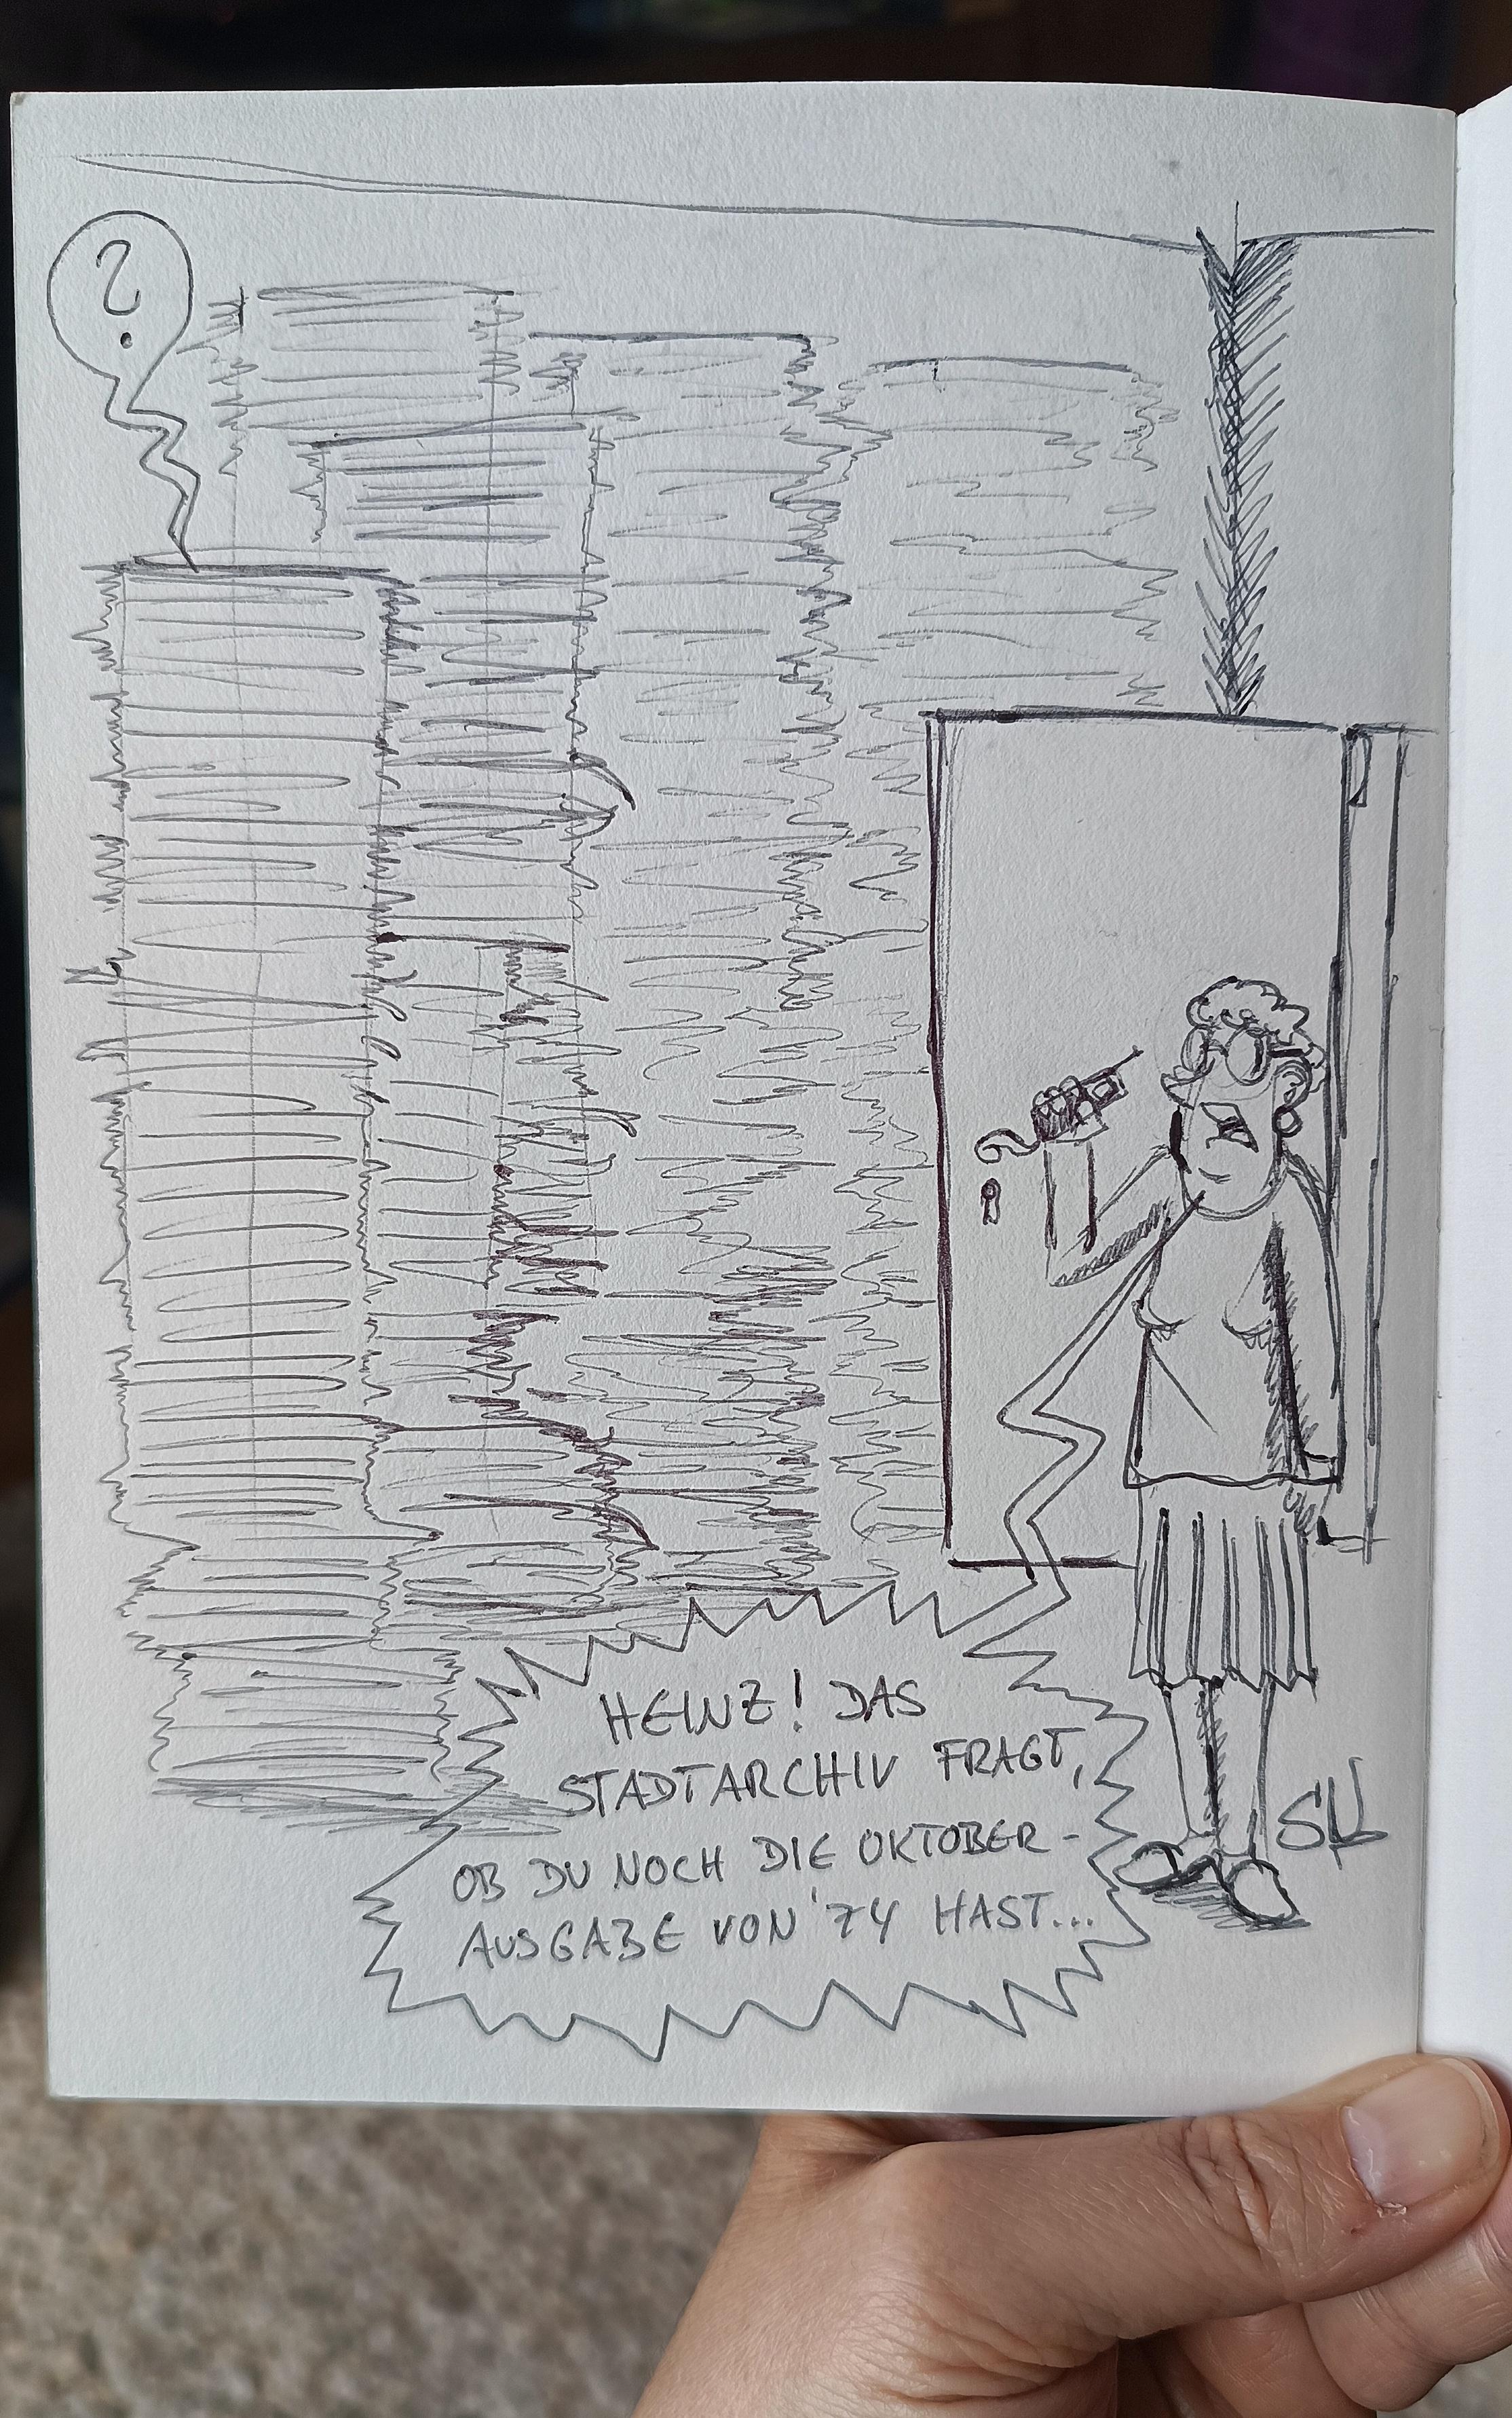 ?
HEINZ! DAS
STADTARCHIV FRAGT,
OB DU NOCH DIE OKTOBER-
AUSGABE VON '74 HAST...
SK